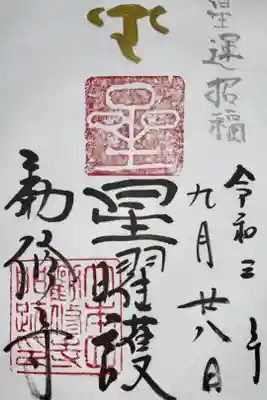 星運招福
令和三年
九月廿八日
星
星曜護
勧修寺